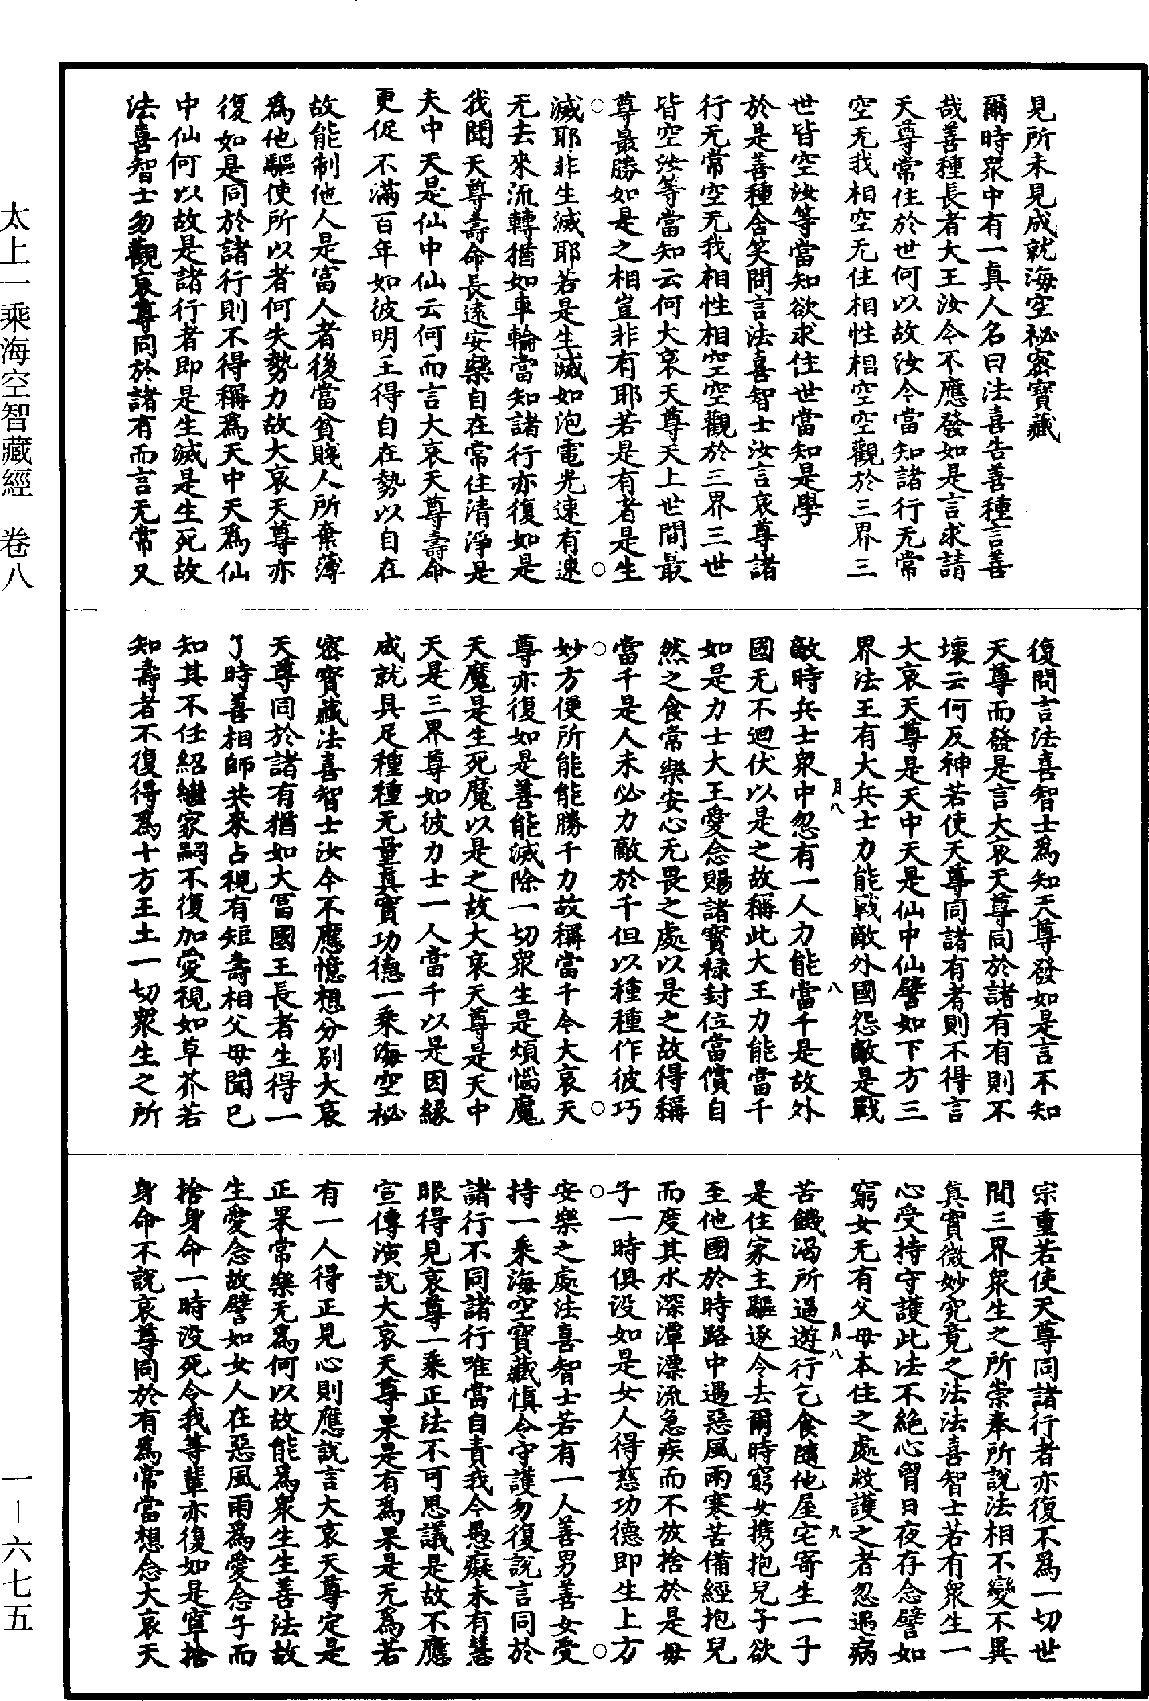 見所未見成就海空祕密寶藏
爾時眾中有一真人名曰法喜告善種言善
哉善種長者大王汝今不應發如是言求請
天尊常住於世何以故汝今當知諸行无常
空无我相空无住相性相空空觀於三界三
世皆空汝等當知欲求住世當知是學
於是善種含笑問言法喜智士汝言哀尊諸
行无常空无我相性相空空觀於三界三世
皆空汝等當知云何大哀天尊天上世間最
尊最勝如是之相豈非有耶若是有者是生
滅耶非生滅耶若是生滅如泡電光速有速
无去來流轉猶如車輪當知諸行亦復如是
我聞天尊壽命長遠安樂自在常住清淨是
天中天是仙中仙云何而言大哀天尊壽命
更促不滿百年如彼明王得自在勢以自在
故能制他人是富人者後當貧賤人所棄薄
為他驅使所以者何失勢力故大哀天尊亦
復如是同於諸行則不得稱為天中天為仙
中仙何以故是諸行者即是生滅是生死故
法喜智士勿觀哀尊同於諸有而言无常又
復問言法喜智士為知天尊發如是言不知
天尊而發是言大哀天尊同於諸有有則不
壞云何反神若使天尊同諸有者則不得言
大哀天尊是天中天是仙中仙譬如下方三
界法王有大兵士力能戰敵外國怨敵是戰
敵時兵士眾中忽有一人力能當千是故外
國无不迴伏以是之故稱此大王力能當千
如是力士大王愛念賜諸寶祿封位當償自
然之食常樂安心无畏之處以是之故得稱
當千是人未必力敵於千但以種種作彼巧
妙方便所能能勝千力故稱當千今大哀天
尊亦復如是善能滅除一切眾生是煩惱魔
天魔是生死魔以是之故大哀天尊是天中
天是三界尊如彼力士一人當千以是因緣
成就具足種種无量真實功德一乘海空祕
密寶藏法喜智士汝今不應憶想分別大哀
天尊同於諸有猶如大富國王長者生得一
了時善相師共來占視有短壽相父母聞已
知其不任紹繼家嗣不復加愛視如草芥若
知壽者不復得為十方王土一切眾生之所
宗重若使天尊同諸行者亦復不為一切世
間三界眾生之所崇奉所說法相不變不異
真實微妙究竟之法法喜智士若有眾生一
心受持守護此法不絕心胷日夜存念譬如
窮女无有父母本住之處救護之者忽遇病
苦飢渴所逼遊行乞食隨他屋宅寄生一子
是住家主驅逐令去爾時窮女携抱兒子欲
至他國於時路中遇惡風雨寒苦備經抱兒
而度其水深潭漂流急疾而不放捨於是母
子一時俱没如是女人得慈功德即生上方
安樂之處法喜智士若有一人善男善女受
持一乘海空寶藏慎令守護勿復說言同於
諸行不同諸行唯當自責我今愚癡未有慧
眼得見哀尊一乘正法不可思議是故不應
宣傳演說大哀天尊果是有為果是无為若
有一人得正見心則應說言大哀天尊定是
正果常樂无為何以故能為眾生生善法故
生愛念故譬如女人在惡風雨為愛念子而
捨身命一時没死令我等輩亦復如是寧捨
身命不說哀尊同於有為常當想念大哀天
月八
八
月八
九
太上一乘海空智藏經　卷八
一－六七五